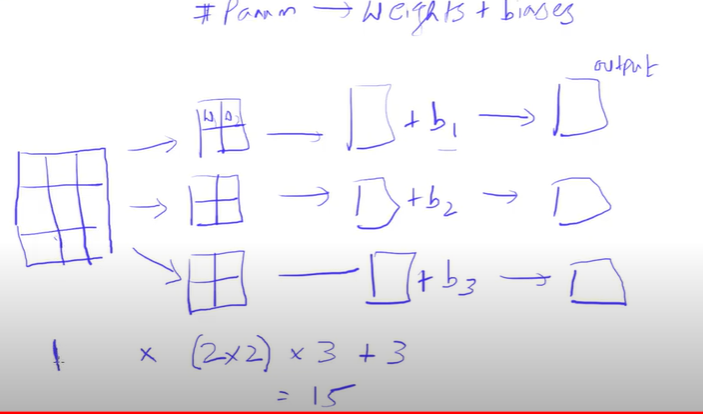 # Param → Weights + biases
output
W₁ W₂
+ b₁
+ b₂
+ b₃
1 × (2×2) × 3 + 3
= 15